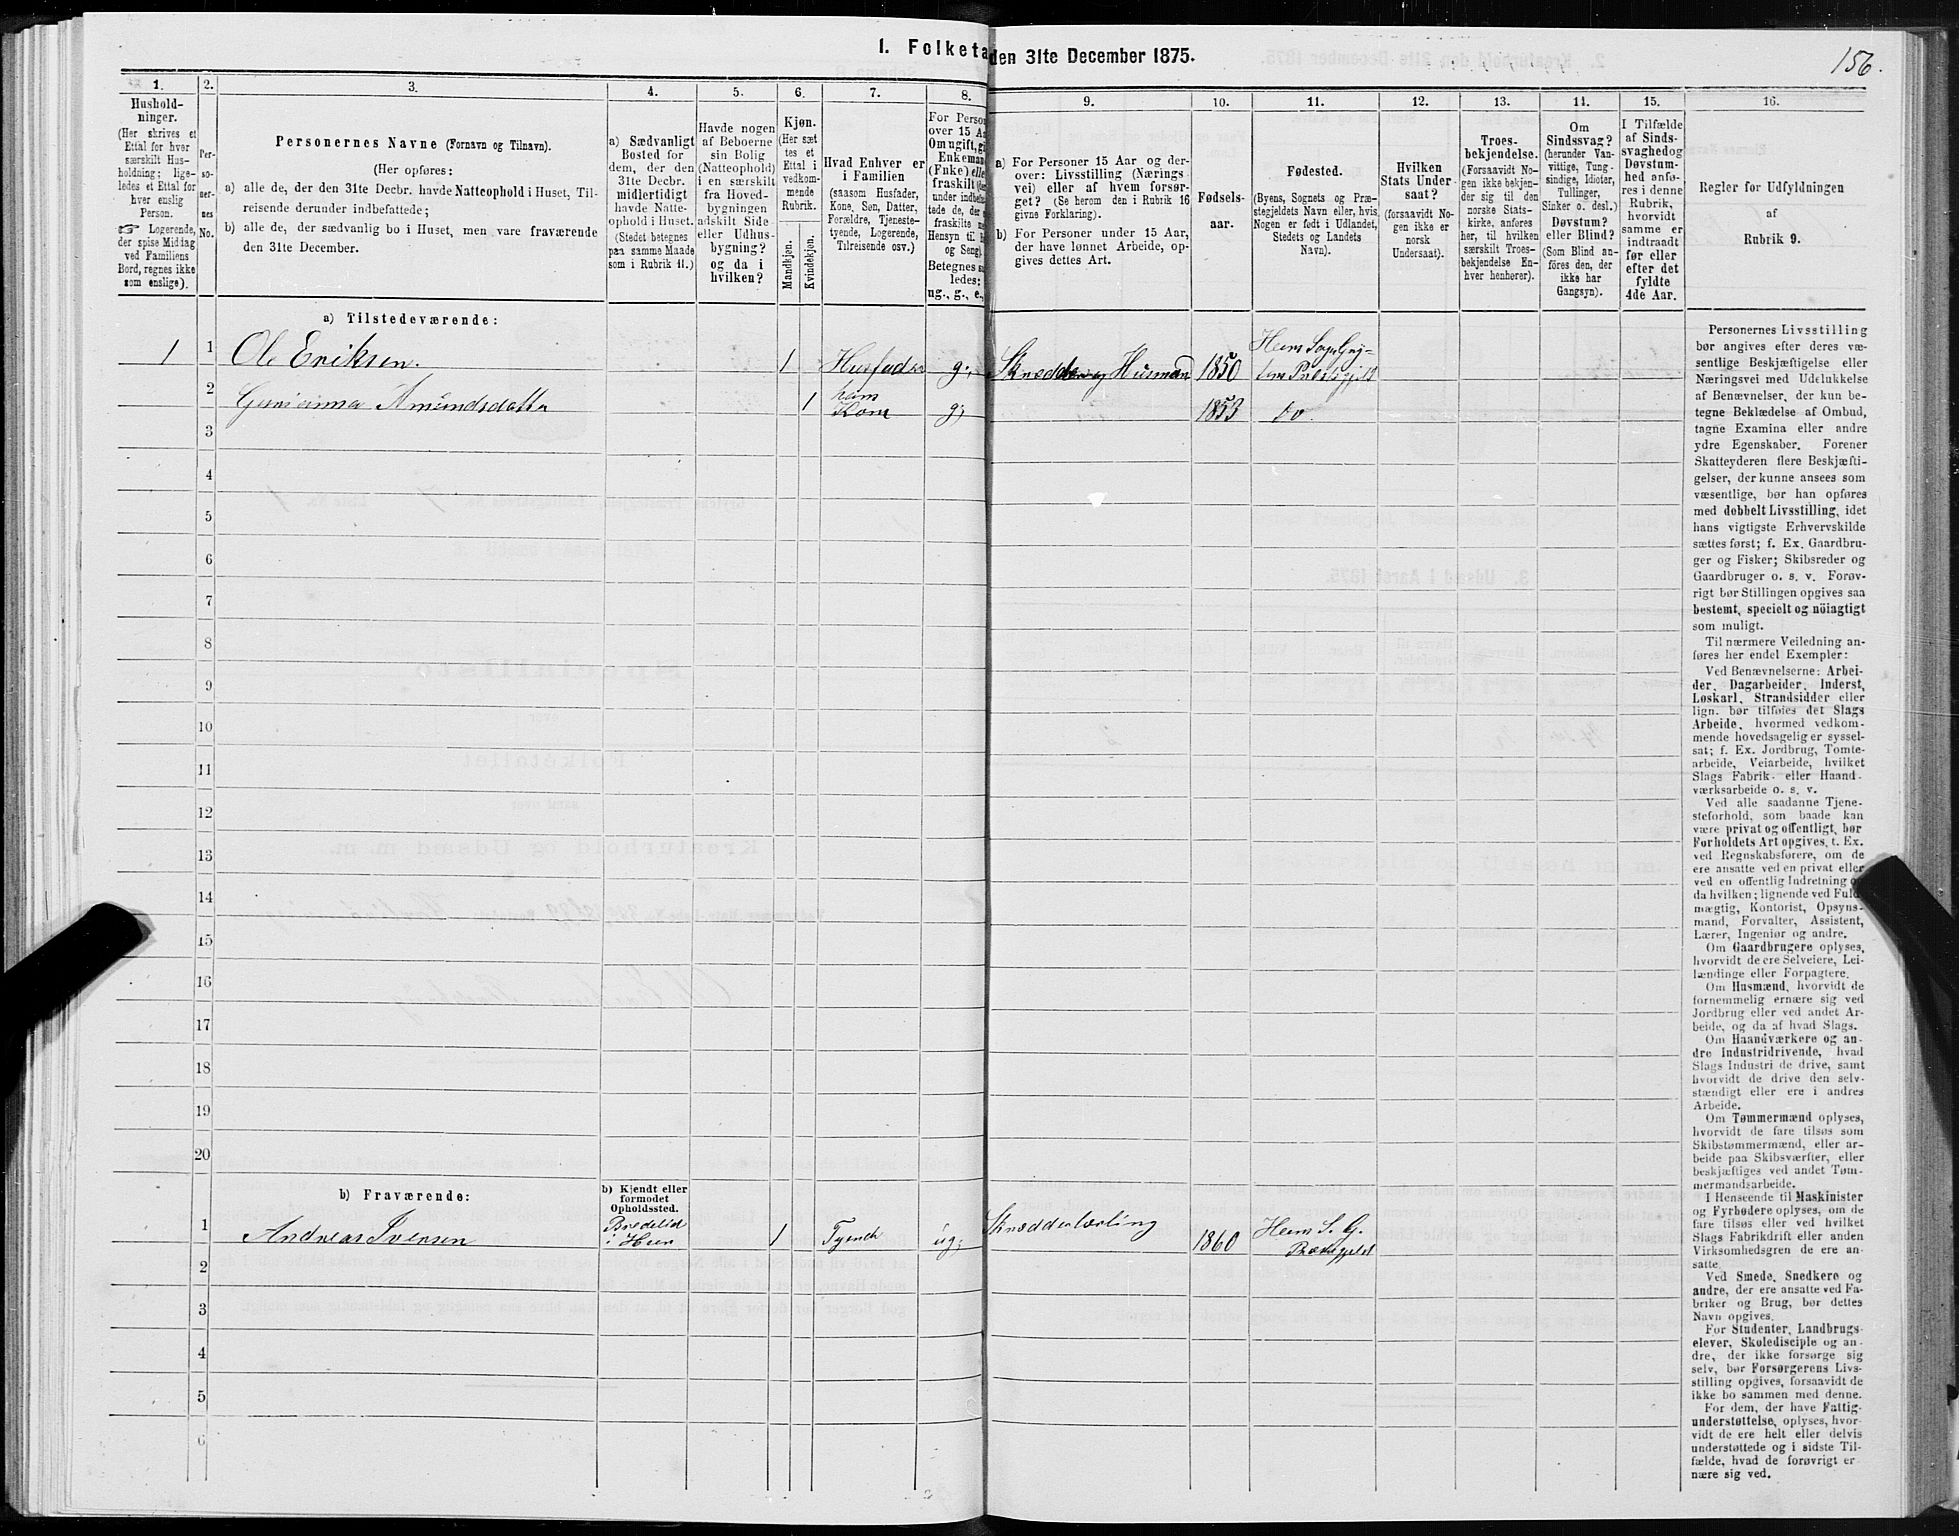 156.
1. Folketa
den 31te December 1875.
1.
2.
3.
4.
5.
6.
7.
8.
9.
10.
11.
12.
13.
14.
15.
16.
Hushold-
ninger.
(Her skrives et
Ettal for hver
særskilt Hus-
holdning; lige-
ledes et Ettal for
hver enslig
Person.
☞ Logerende,
der spise Middag
ved Familiens
Bord, regnes ikke
som enslige).
Per-
so-
ner-
nes
No.
Personernes Navne (Fornavn og Tilnavn).
(Her opføres:
a) alle de, der den 31te Decbr. havde Natteophold i Huset, Til-
reisende derunder indbefattede;
b) alle de, der sædvanlig bo i Huset, men vare fraværende
den 31te December.
a) Sædvanligt
Bosted for
dem, der den
31te Decbr.
midlertidigt
havde Natte-
ophold i Huset.
(Stedet betegnes
paa samme Maade
som i Rubrik 11.)
Havde nogen
af Beboerne
sin Bolig
(Natteophold)
i en særskilt
fra Hoved-
bygningen
adskilt Side
eller Udhus-
bygning?
og da i
hvilken?
Kjøn.
(Her sæt
tes et
Ettal i
vedkom-
mende
Rubrik.
Mandkjøn.
Kvindekjøn.
Hvad Enhver er
i Familien
(saasom Husfader,
Kone, Søn, Datter,
Forældre, Tjeneste-
tyende, Logerende,
Tilreisende osv.)
For Person
over 15 Aa
Om ugift, gi
Enkemand
(Enke) elle
fraskilt
under indbe
tede de, der
fraskilte
Hensyn til
og Seng).
Betegnes
ledes:
ug., g., e.,
a) For Personer 15 Aar og der-
over: Livsstilling (Nærings
vei) eller af hvem forsør-
get? (Se herom den i Rubrik 16
givne Forklaring).
b) For Personer under 15 Aar,
der have lønnet Arbeide, op-
gives dettes Art.
Fødsels-
aar.
Fødested.
(Byens, Sognets og Præ-
stegjeldets Navn eller, hvis
Nogen er født i Udlandet,
Stedets og Landets
Navn).
Hvilken
Stats Under
saat?
(forsaavidt No-
gen ikke er
norsk
Undersaat).
Troes-
bekjendelse.
(Forsaavidt No
gen ikke bekjen-
der sig til den
norske Stats-
kirke, anføres
her, til hvilken
særskilt Troes-
bekjendelse En-
hver henhører).
Om
Sindssvag?
(herunder Van-
vittige, Tung-
sindige, Idioter,
Tullinger,
Sinker o. desl.)
Døvstum?
eller Blind?
(Som Blind an-
føres den, der
ikke har
Gangsyn).
I Tilfælde
af Sinds-
svaghed og
Døvstum-
hed anfø-
res i denne
Rubrik,
hvorvidt
samme er
indtraadt
før eller
efter det
fyldte
4de Aar.
Regler for Udfyldningen
af
Rubrik 9.
a) Tilstedeværende:
1
1
Ole Eriksen.
1
Husfader
g.,
Skrædder og Husmand
1850
Hems Sogn Gry-
2
Amundsdatter
1
hans
Kone
g;
1853
do
3
4
5
6
7
8
9
10
11
12
13
14
15
16
17
18
19
20
b) Fraværende:
b) Kjendt eller
formodet
Opholdssted.
1
Andreas Iversen
Bredelid
i Hem
1
Tyende
ug;
Skrædderlærling
1860
Hems S. G.
Præstegjeld
2
3
4
5
6
Personernes Livsstilling
bør angives efter deres væ-
sentlige Beskjæftigelse eller
Næringsvei med Udelukkelse
af Benævnelser, der kun be-
tegne Beklædelse af Ombud,
tagne Examina eller andre
ydre Egenskaber. Forener
Skatteyderen flere Beskjæfti-
gelser, der kunne ansees som
væsentlige, bør han opføres
med dobbelt Livsstilling, idet
hans vigtigste Erhvervskilde
sættes først; f. Ex. Gaardbru-
ger og Fisker; Skibsreder og
Gaardbruger o. s. v. Forøv-
rigt bør Stillingen opgives saa
bestemt, specielt og nöiagtigt
som muligt.
Til nærmere Veiledning an-
føres her endel Exempler:
Ved Benævnelserne: Arbei-
der, Dagarbeider, Inderst,
Løskarl, Strandsidder eller
lign. bør tilføies det Slags
Arbeide, hvormed vedkom-
mende hovedsagelig er syssel-
sat; f. Ex. Jordbrug, Tomte-
arbeide, Veiarbeide, hvilket
Slags Fabrik- eller Haand-
værksarbeide o. s. v.
Ved alle saadanne Tjene-
steforhold, som baade kan
være privat og offentligt, bør
Forholdets Art opgives, t. Ex.
ved Regnskabsførere, om de
ere ansatte ved en privat eller
ved en offentlig Indretning o
da hvilken; lignende ved Fuld
mægtig, Kontorist, Opsyns-
mand, Forvalter, Assistent,
Lærer, Ingeniør og andre.
Om Gaardbrugere oplyses,
hvorvidt de ere Selveiere, Lei-
lændinge eller Forpagtere.
Om Husmænd, hvorvidt de
fornemmelig ernære sig ved
Jordbrug eller ved andet Ar-
beide, og da af hvad Slags.
Om Haandværkere og an-
dre Industridrivende, hvad
Slags Industri de drive, samt
hvorvidt de drive den selv-
stændigt eller ere i andres
Arbeide.
Om Tømmermænd oplyses,
hvorvidt de fare tilsøs som
Skibstømmermænd, eller ar-
beide paa Skibsværfter, eller
beskjæftiges ved andet Tøm-
mermandsarbeide.
I Henseende til Maskinister
og Fyrbødere oplyses, om de
fare tilsøs eller ved hvilket
Slags Fabrikdrift eller anden
Virksomhedsgren de ere an-
satte.
Ved Smede, Snedkere og
andre, der ere ansatte ved Fa-
briker og Brug, bør dettes
Navn opgives.
For Studenter, Landbrugs-
elever, Skoledisciple og an-
dre, der ikke forsørge sig
selv, bør Forsørgerens Livs-
stilling opgives, forsaavidt de
ikke bo sammen med denne.
For dem, der have Fattig-
understøttelse, oplyses, hvor-
vidt de ere helt eller delvis
understøttede og i sidste Til-
fælde, hvad de forøvrigt er
nære sig ved.